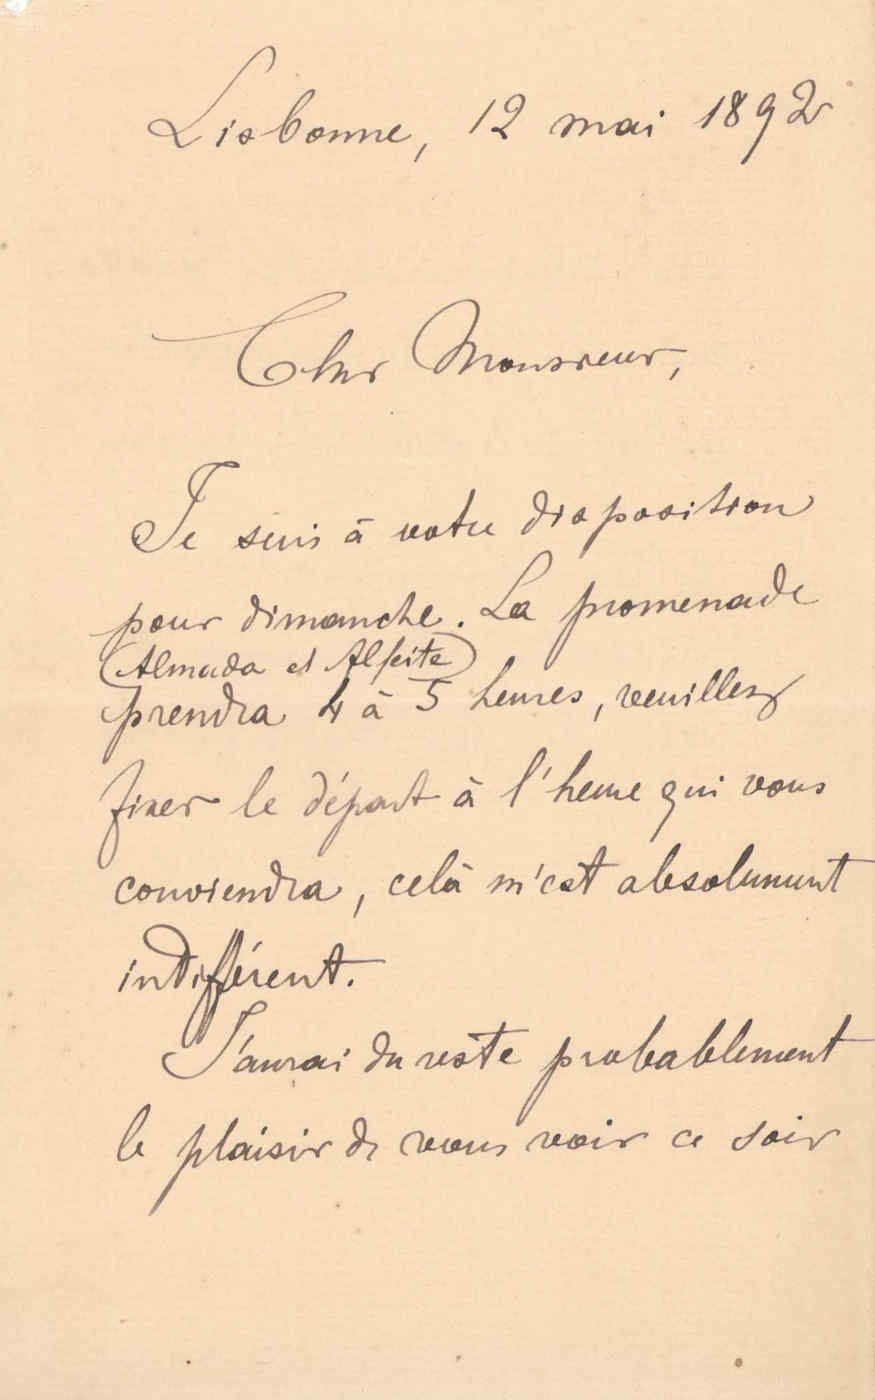 Lisbonne, 12 mai 1892
Cher Monsieur,
Je suis à votre disposition
pour dimanche. La promenade
(Almada et Alfeite)
prendra 4 à 5 heures, veuillez
fixer le départ à l'heure qui vous
conviendra, celà m'est absolument
indifférent.
J'aurai du reste probablement
le plaisir de vous voir ce soir